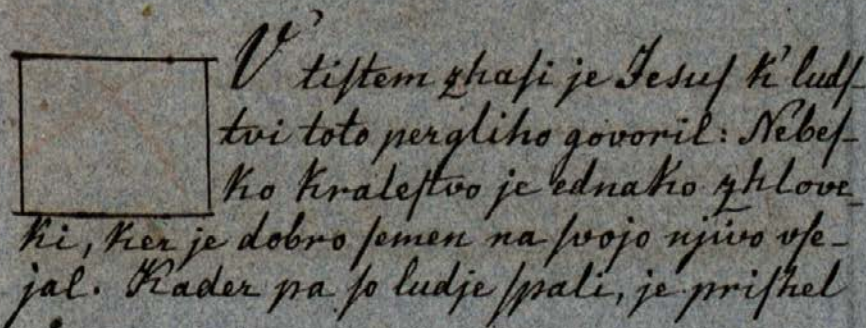 V tiſtem zhaſi je Jesuſ k' ludſ-
tvi toto pergliho govoril: Nebeſ-
ko kraleſtvo je ednako zhlove-
ki, ker je dobro ſemen na ſvojo njivo vſe-
jal. Kader pa ſo ludje ſpali, je priſhel